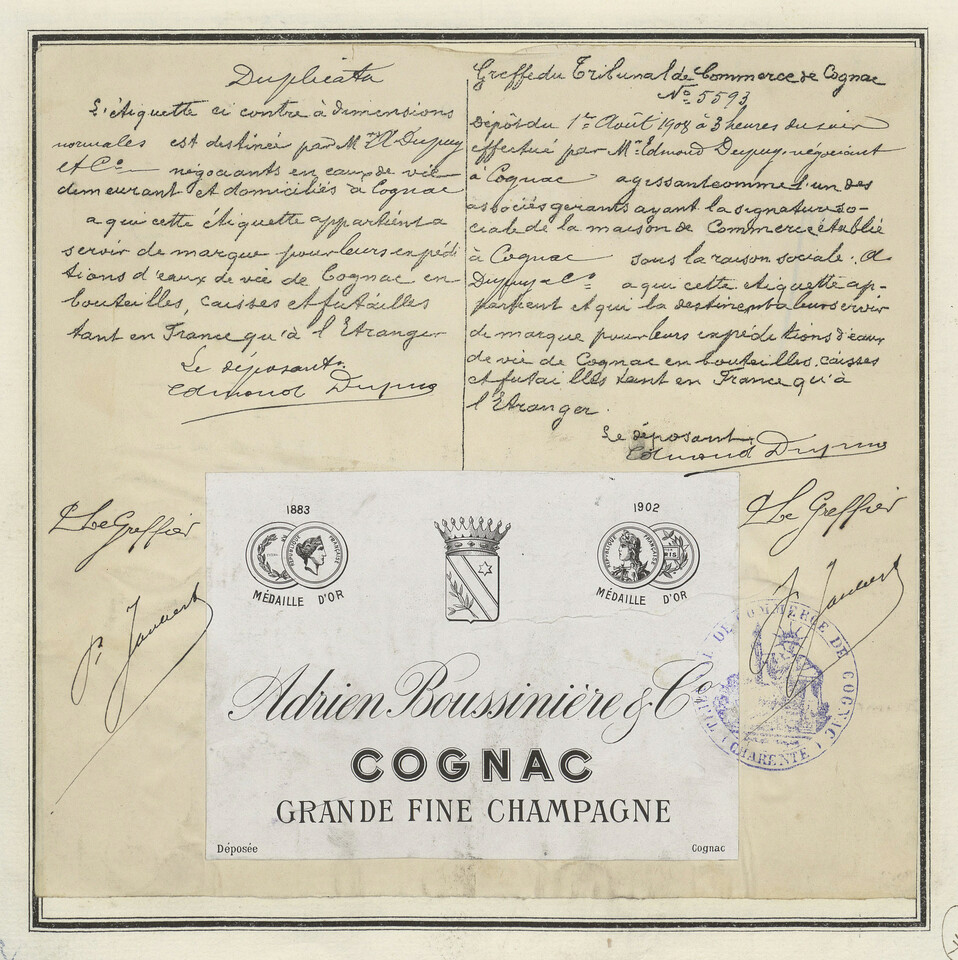 Duplicata
L'étiquette ci contre à dimensions
normales est destinée par Mr A Dupuy
et Co négociants en eaux de vie
demeurant et domiciliés à Cognac
a qui cette étiquette appartient a
servir de marque pour leurs expédi
tions d'eaux de vie de Cognac en
bouteilles, caisses et futailles
tant en France qu'à l'Etranger
Le déposant.
Edmond Dupuy
Greffe du Tribunal de Commerce de Cognac
No 5593
Dépôt du 1er Août 1908 à 3 heures du soir
effectué par Mr Edmond Dupuy, négociant
à Cognac agissant comme l'un des
associés gerants ayant la signature so-
ciale de la maison de Commerce établie
à Cognac sous la raison sociale. A.
Dupuy & Co a qui cette étiquette ap-
partient et qui la destinent a leur servir
de marque pour leurs expéditions d'eaux
de vie de Cognac en bouteilles, caisses
et futailles tant en France qu'à
l'Etranger.
Le déposant
Edmond Dupuy
Le Greffier
Le Greffier
1883
MÉDAILLE D'OR
1902
MÉDAILLE D'OR
RÉPUBLIQUE FRANÇAISE
RÉPUBLIQUE FRANÇAISE
Adrien Boussinière & Co
COGNAC
GRANDE FINE CHAMPAGNE
Déposée
Cognac
TRIBUNAL DE COMMERCE DE COGNAC
(CHARENTE)